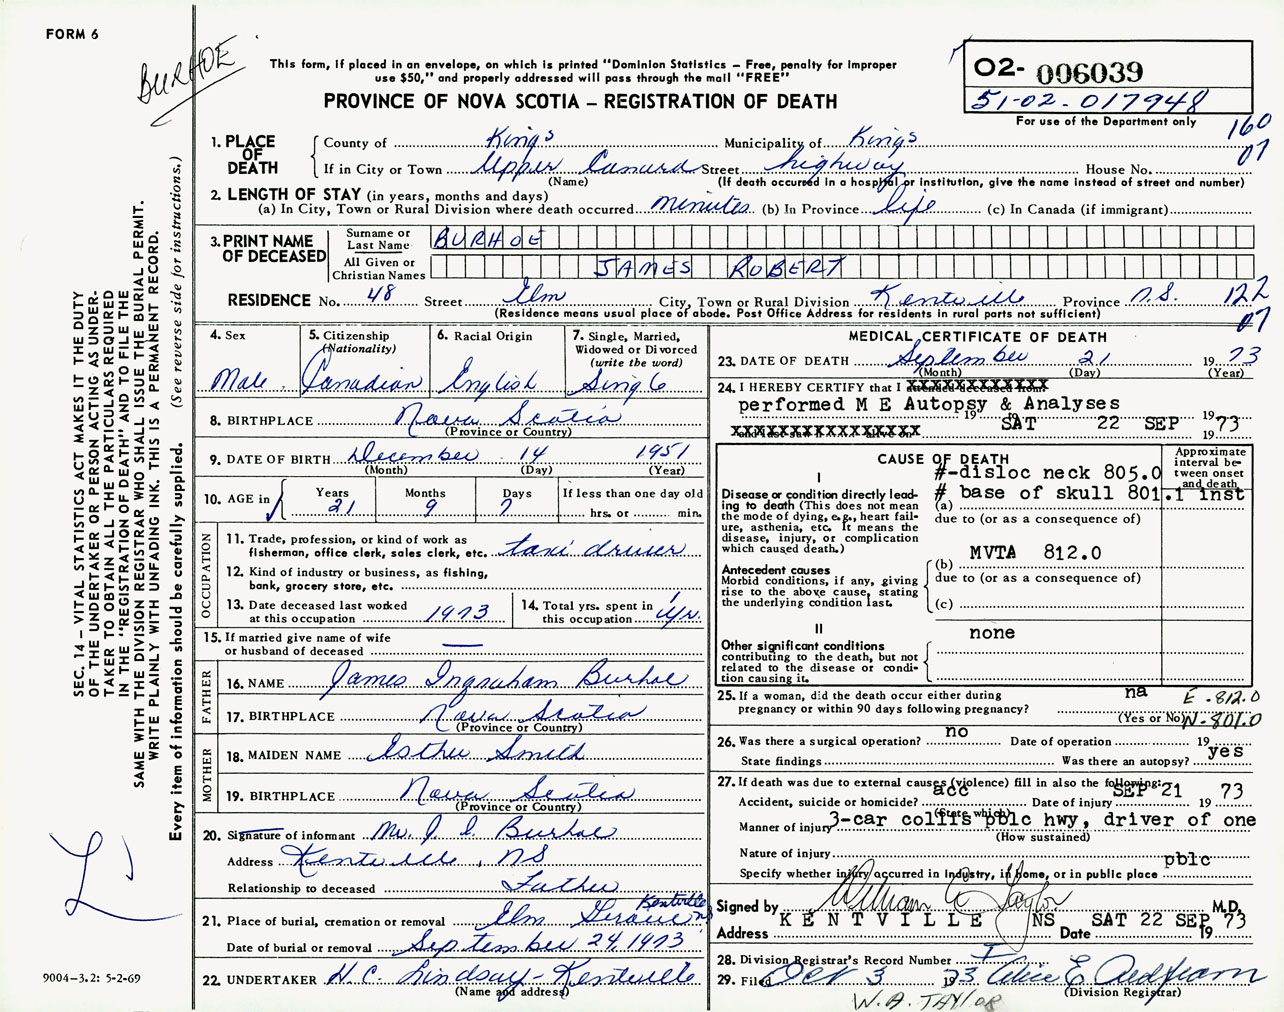 FORM 6
BURHOE
This form, if placed in an envelope, on which is printed "Dominion Statistics – Free, penalty for improper
use $50," and properly addressed will pass through the mail "FREE"
PROVINCE OF NOVA SCOTIA – REGISTRATION OF DEATH
02- 006039
51-02-017948
For use of the Department only
160
07
1. PLACE OF DEATH
County of Kings Municipality of Kings
If in City or Town Upper Canard Street highway House No.
(Name) (If death occurred in a hospital or institution, give the name instead of street and number)
2. LENGTH OF STAY (in years, months and days)
(a) In City, Town or Rural Division where death occurred minutes (b) In Province life (c) In Canada (if immigrant)
3. PRINT NAME OF DECEASED
Surname or Last Name BURHOE
All Given or Christian Names JAMES ROBERT
RESIDENCE No. 48 Street Elm City, Town or Rural Division Kentville Province N.S. 122
(Residence means usual place of abode. Post Office Address for residents in rural parts not sufficient) 07
4. Sex Male
5. Citizenship (Nationality) Canadian
6. Racial Origin English
7. Single, Married, Widowed or Divorced (write the word)
8. BIRTHPLACE Nova Scotia
(Province or Country)
9. DATE OF BIRTH December 14 1951
(Month) (Day) (Year)
10. AGE in Years 21 Months 9 Days 7 If less than one day old hrs. or min.
OCCUPATION
11. Trade, profession, or kind of work as
fisherman, office clerk, sales clerk, etc. taxi driver
12. Kind of industry or business, as fishing,
bank, grocery store, etc.
13. Date deceased last worked
at this occupation 1973
14. Total yrs. spent in
this occupation 1 yr.
15. If married give name of wife
or husband of deceased —
FATHER
16. NAME James Ingraham Burhoe
17. BIRTHPLACE Nova Scotia
(Province or Country)
MOTHER
18. MAIDEN NAME Esther Smith
19. BIRTHPLACE Nova Scotia
(Province or Country)
20. Signature of informant Mr. J. I. Burhoe
Address Kentville, NS
Relationship to deceased Father
21. Place of burial, cremation or removal Elm Grove Kentville NS
Date of burial or removal September 24, 1973
22. UNDERTAKER H.C. Lindsay – Kentville
(Name and address)
MEDICAL CERTIFICATE OF DEATH
23. DATE OF DEATH September 21 1973
(Month) (Day) (Year)
24. I HEREBY CERTIFY that I attended deceased from
performed M E Autopsy & Analyses
19 SAT 22 SEP 1973
and last saw h alive on 19
CAUSE OF DEATH
Approximate interval between onset and death
I
#-disloc neck 805.0
Disease or condition directly leading to death (This does not mean the mode of dying, e.g., heart failure, asthenia, etc. It means the disease, injury, or complication which caused death.)
# base of skull 801.1 inst
(a)
due to (or as a consequence of)
MVTA 812.0
(b)
due to (or as a consequence of)
Antecedent causes
Morbid conditions, if any, giving rise to the above cause, stating the underlying condition last.
(c)
II
none
Other significant conditions
contributing to the death, but not related to the disease or condition causing it.
25. If a woman, did the death occur either during
pregnancy or within 90 days following pregnancy? na
(Yes or No)
E-812.0
N-801.0
26. Was there a surgical operation? no Date of operation 19
State findings Was there an autopsy? yes
27. If death was due to external causes (violence) fill in also the following:
Accident, suicide or homicide? acc Date of injury SEP 21 1973
(State which)
Manner of injury 3-car collis pblc hwy, driver of one
(How sustained)
Nature of injury
Specify whether injury occurred in Industry, in home, or in public place pblc
Signed by William A Taylor M.D.
Address KENTVILLE NS Date SAT 22 SEP 1973
28. Division Registrar's Record Number
29. Filed Oct 3 1973
(Division Registrar)
W.A. TAYLOR
SEC. 14 – VITAL STATISTICS ACT MAKES IT THE DUTY
OF THE UNDERTAKER OR PERSON ACTING AS UNDER-
TAKER TO OBTAIN ALL THE PARTICULARS REQUIRED
IN THE "REGISTRATION OF DEATH" AND TO FILE THE
SAME WITH THE DIVISION REGISTRAR WHO SHALL ISSUE THE BURIAL PERMIT.
WRITE PLAINLY WITH UNFADING INK. THIS IS A PERMANENT RECORD.
Every item of information should be carefully supplied. (See reverse side for instructions.)
9004–3.2: 5-2-69